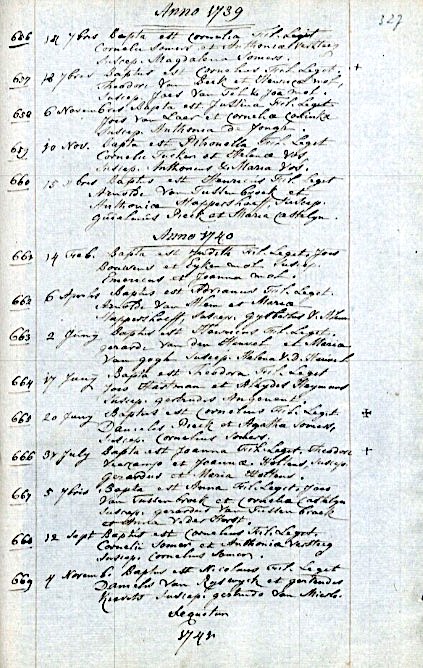 Anno 1739
327
656 14 7bris Bapta est Cornelia Fil. Legit
Cornelii Somers et Anthonia Versteeg
Suscep. Magdalena Somers.
657 18 7bris Baptus est Cornelius Fil. Legit.
Theodori Van Beek et Henrica mol,
Suscep. Joes Van Tel & Joa mol.
658 6 Novembris Bapta est Justina Fil. Leget.
Joes Van Laer et Cornelia
Suscep. Anthonia De Jongh.
659 30 Nov. Bapta est Petronella Fil. Leget
Cornelii Tucker et Helena Vos,
Suscep. Anthonius & Maria Vos.
660 15 Xbris Baptus est Henricus Fil. Leget
Arnoldi Van Tussenbroek et
Anthonia Stappershoeff, Suscep.
Guilelmus Pieck et Maria Castelyn.
Anno 1740
661 14 Feb. Bapta est Judith Fil. Leget. Joes
et Eyken mol Suscep.
Emericus et Joanna mol.
662 6 Aprilis Baptus est Adrianus Fil. Leget.
Arnoldi Van Wlem et Maria
Stappershoeff, Suscep. Gysbertus V.
663 2 Juny Baptus est Henricus Fil. Leget.
Gerardi van den Heuvel et Maria
Van gogh Suscep. Helena V.D. Heuvel
664 17 Juny Bapta est Theodora Fil. Leget
Joes Hartman et Aleydes Heymans
Suscep. gertrudis
665 20 Juny Baptus est Cornelius Fil. Leget
Danielis Pieck et Agatha Somers,
Suscep. Cornelius Somers.
666 31 July Bapta est Joanna Fil. Leget. Theodori
et Joanna Hollens, Suscep.
Gerardus et Maria Hollens.
667 5 7bris Bapta est Anna Fil. Leget. Joes
Van Tussenbroek et Cornelia Castelyn
Suscep. gerardus Van Tussenbroek
et Anna V. der Horst.
668 12 Sept Baptus est Cornelius Fil. Leget.
Cornelii Somers et Anthonia Versteeg
Suscep. Cornelius Somers.
669 4 Novemb. Baptus est Nicolaus Fil. Leget
Danielis Van Ryswyck et gertrudes
Suscep. gertrudo Van
Sequitur
1741